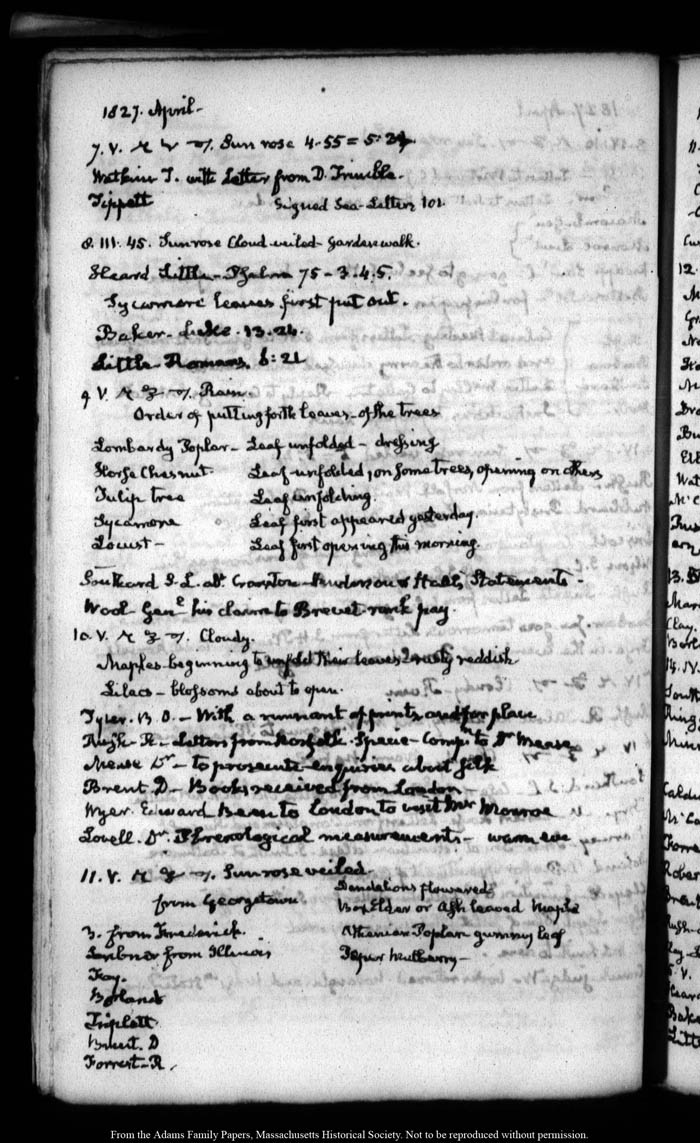 1827. April-
7. V. Sun rose 4-55 = 5:24.
Watkins T. with Letter from D. Trimble.
Tippett Signed Sea-Letters 101.
8. III. 45. Sun rose Cloud-veiled- Garden walk.
Heard Little- Psalm 75-3.4.5.
Sycamore leaves first put out.
Baker- Luke. 13.24.
Little- Romans. 6:21
9 V. Rain.
Order of putting forth leaves- of the trees
Lombardy Poplar- Leaf unfolded- dressing
Horse Chesnut Leaf unfolded, on some trees, opening on others
Tulip tree Leaf unfolding.
Sycamore Leaf first appeared yesterday.
Locust- Leaf first opening this morning.
Southard S. L. abt Statements-
Wool- Genl his claim to Brevet rank pay.
10. V. Cloudy.
Maples- beginning to unfold their leaves rusty reddish
Lilacs- blossoms about to open.
Tyler. B. O.- With a remnant of prints and for place
Rush- R- Letters from Norfolk. Specie- Compts to Dr Mease
Mease Dr- to prosecute enquiries about silk
Brent D- Books received from London
Wyer. Edward Been to Loudon to visit Mr Monroe
Lovell. Dr. Phrenological measurements- warm eve
11. V. Sun rose veiled.
from Georgetown Dandelions flowered
Box Elder or Ash leaved Maple
3. from Frederick. Athenian Poplar gummy leaf
Scribner from Illinois Paper Mulberry-
Fay.
Borland
Triplett
Brent. D
Forrest- R.
From the Adams Family Papers, Massachusetts Historical Society. Not to be reproduced without permission.